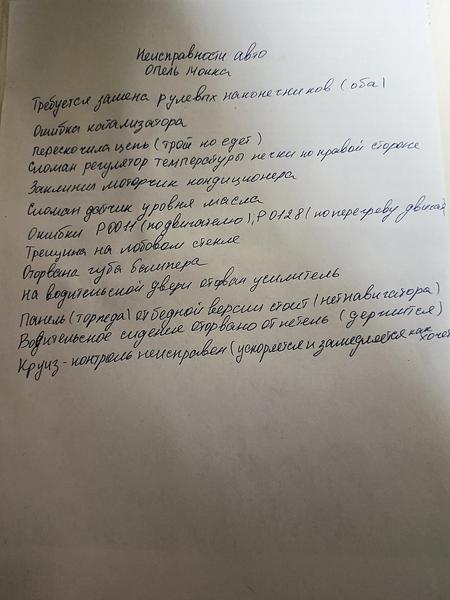 Неисправности авто
Опель Мокка
Требуется замена рулевых наконечников (оба)
Ошибка катализатора
перескочила цепь (троит но едет)
Сломан регулятор температуры печки по правой стороне
Заклинил моторчик кондиционера
Сломан датчик уровня масла
Ошибки Р0011 (по двигателю), Р0128 (по перегреву двигат
Трещина на лобовом стекле
Оторвана губа бампера
на водительской двери оторван усилитель
Панель (торпеда) от бедной версии стоит (нет навигатора)
Водительское сидение оторвано от петель (держится)
Круиз-контроль неисправен (ускоряется и замедляется как хочет